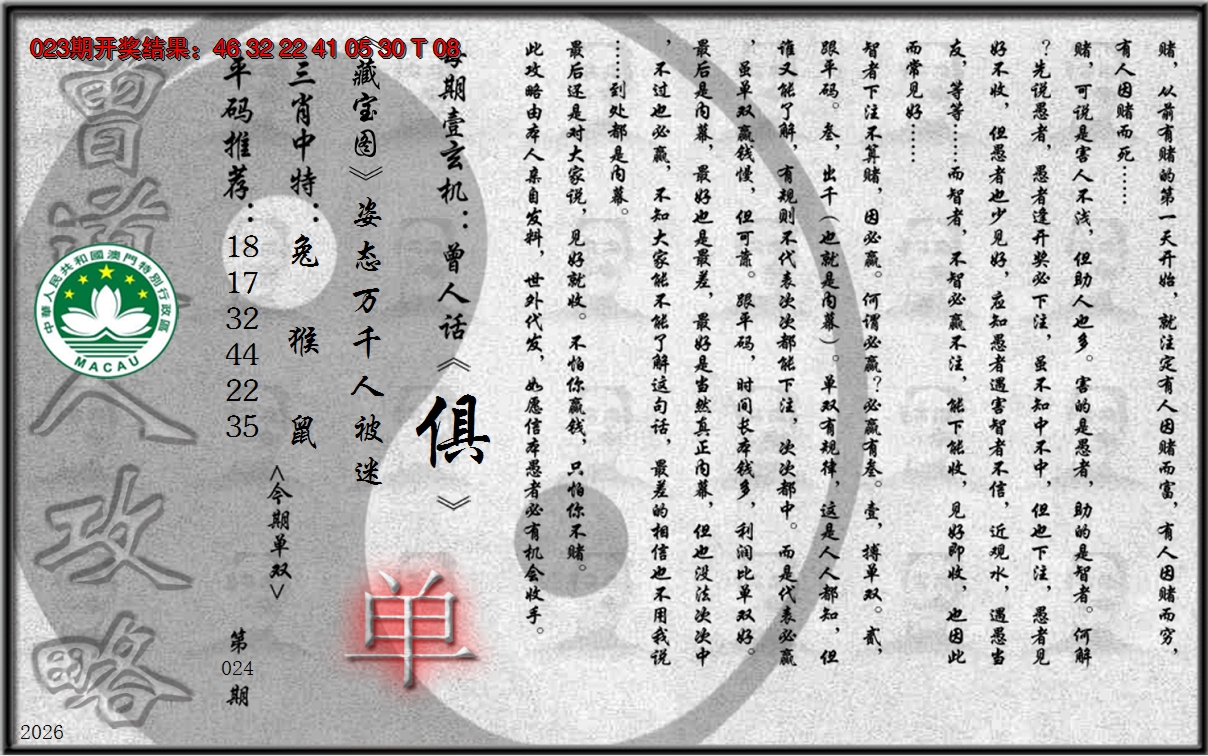 023期开奖结果：46 32 22 41 05 30 T 08
赌，从前有赌的第一天开始，就注定有人因赌而富，有人因赌而穷，
有人因赌而死……
赌，可说是害人不浅，但助人也多。害的是愚者，助的是智者。何解
？先说愚者，愚者逢开奖必下注，虽不知中不中，但也下注，愚者见
好不收，但愚者也少见好，应知愚者遇害智者不信，近观水，遇愚当
友，等等……而智者，不智必赢不注，能下能收，见好即收，也因此
而常见好……
智者下注不算赌，因必赢。何谓必赢？必赢有叁。壹，搏单双。贰，
跟平码。叁，出千（也就是内幕）。单双有规律，这是人人都知，但
谁又能了解，有规则不代表次次都能下注，次次都中。而是代表必赢
，虽单双赢钱慢，但可靠。跟平码，时间长本钱多，利润比单双好。
最后是内幕，最好也是最差，最好是当然真正内幕，但也没法次次中
，不过也必赢，不知大家能不能了解这句话，最差的相信也不用我说
……到处都是内幕。
最后还是对大家说，见好就收。不怕你赢钱，只怕你不赌。
此攻略由本人亲自发料，世外代发，如愿信本愚者必有机会收手。
每期壹玄机：曾人话《俱》
《藏宝图》姿态万千人被迷
三肖中特：兔 猴 鼠
<今期单双>
单
平码推荐：
18
17
32
44
22
35
第
024
期
曾道人攻略
中華人民共和國澳門特別行政區
MACAU
2026